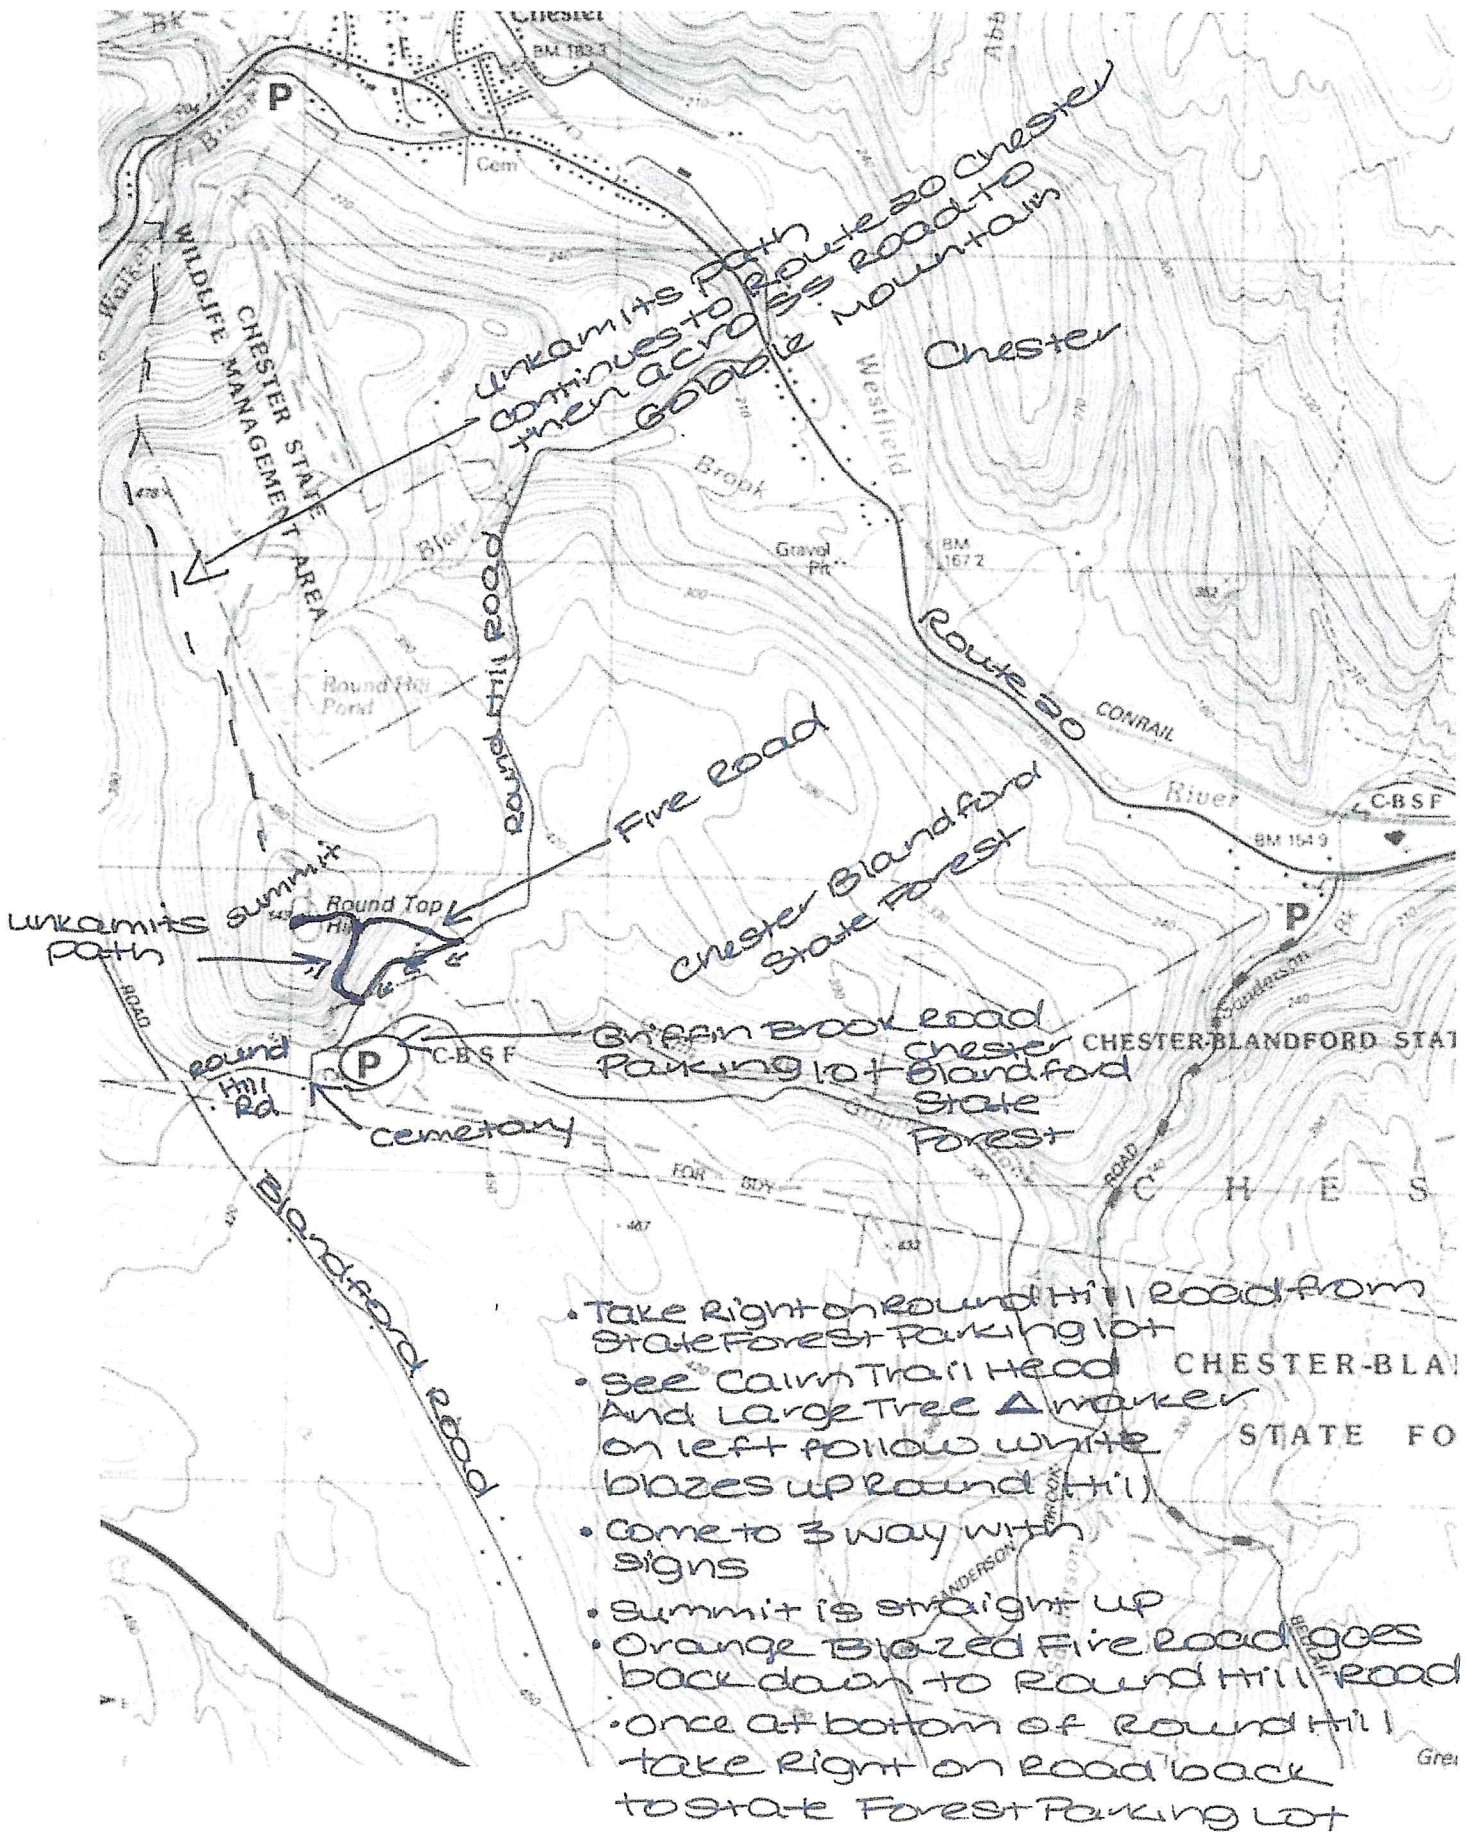 Chester
BM 183.3
P
Cem
Brook
Walker
CHESTER STATE
WILDLIFE MANAGEMENT AREA
unkamits path
continues to Route 20 Chester
then across Road to
Gobble Mountain
Chester
Westfield
Brook
Blair
Gravel
Pit
BM
167 2
Round Hill
Pond
Round Hill Road
Route 20
CONRAIL
River
C-B S F
BM 154 9
Fire Road
Chester Blandford
State Forest
summit
Round Top
Hill
unkamits
path
P
Sanderson
Bk
ROAD
Round
Hill
Rd
P
C-B S F
Griffin Brook Road
Parking lot
Chester
Blandford
State
Forest
CHESTER-BLANDFORD STAT
cemetary
FOR BDY
ROAD
C H E S
467
432
Blandford Road
• Take Right on Round Hill Road from
State Forest Parking lot
• see Cairn Trail Head
And Large Tree Δ marker
on left follow white
blazes up Round Hill
• Come to 3 way with
signs
• Summit is straight up
• Orange Blazed Fire Road goes
back down to Round Hill Road
• Once at bottom of Round Hill
take Right on Road back
to State Forest Parking Lot
CHESTER-BLA
STATE FO
SANDERSON
Gre